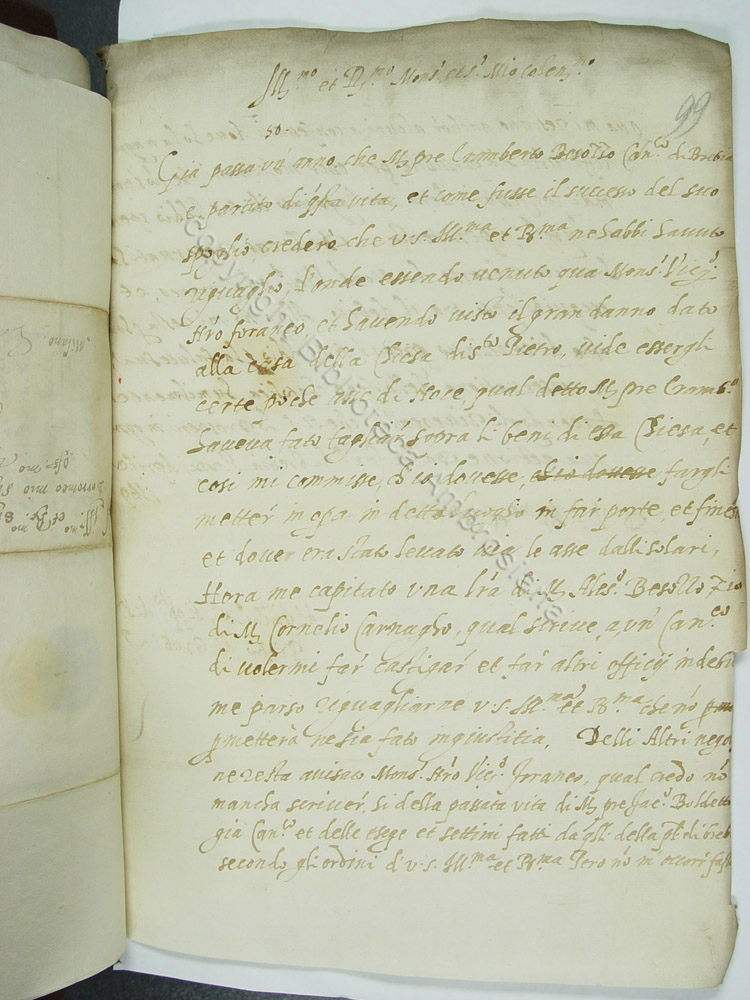 Ill.mo et R.mo Mons.r et s.r Mio Colen.mo
99
50.
Già passa un' anno, che M. pre Lamberto Besozzo Can.co di Brebia
e partito di q̃sta vita, et come fusse il sucesso del suo
spoglio crederò che v.s. Ill.ma et R.ma ne habbi havuto
raguaglio, l'onde essendo venuto qua Mons.r Vic.o
n̄ro foraneo, et havendo visto il gran danno dato
alla casa della Chiesa di s.to Pietro, vide essergli
certe poche asse di Nore, qual detto M. pre Lamb.o
haveva fato tagliar sopra li beni di essa Chiesa, et
cosi mi commisse, ch'io dovesse, ch'io dovesse fargli
metter in opa in detto luogho in far porte, et finest
et dover era stato levato via le asse dalli solari,
Hora me capitato una l̄ra di M. Ales.o Besozzo Zio
di M. Cornelio Carnagho, qual scrive a un' Can.co
di volermi far castigar et far altri officij indebi
me parso raguagliarne v.s. Ill.ma et R.ma che nō
pmetterà ne sia fato ingiustitia. Delli Altri nego
ne resta avisato Mons.r n̄ro Vic.o Foraneo, qual credo nō
mancha scriver, si della passata vita di M. pre Jac.o Boldetto
già Can.co et delle eseqe et settimi fatti da q̃lli della p̃t. di Breb
secondo gli ordini di v.s. Ill.ma et R.ma Pero nō m occorr
copyright Biblioteca Ambrosiana
Milano